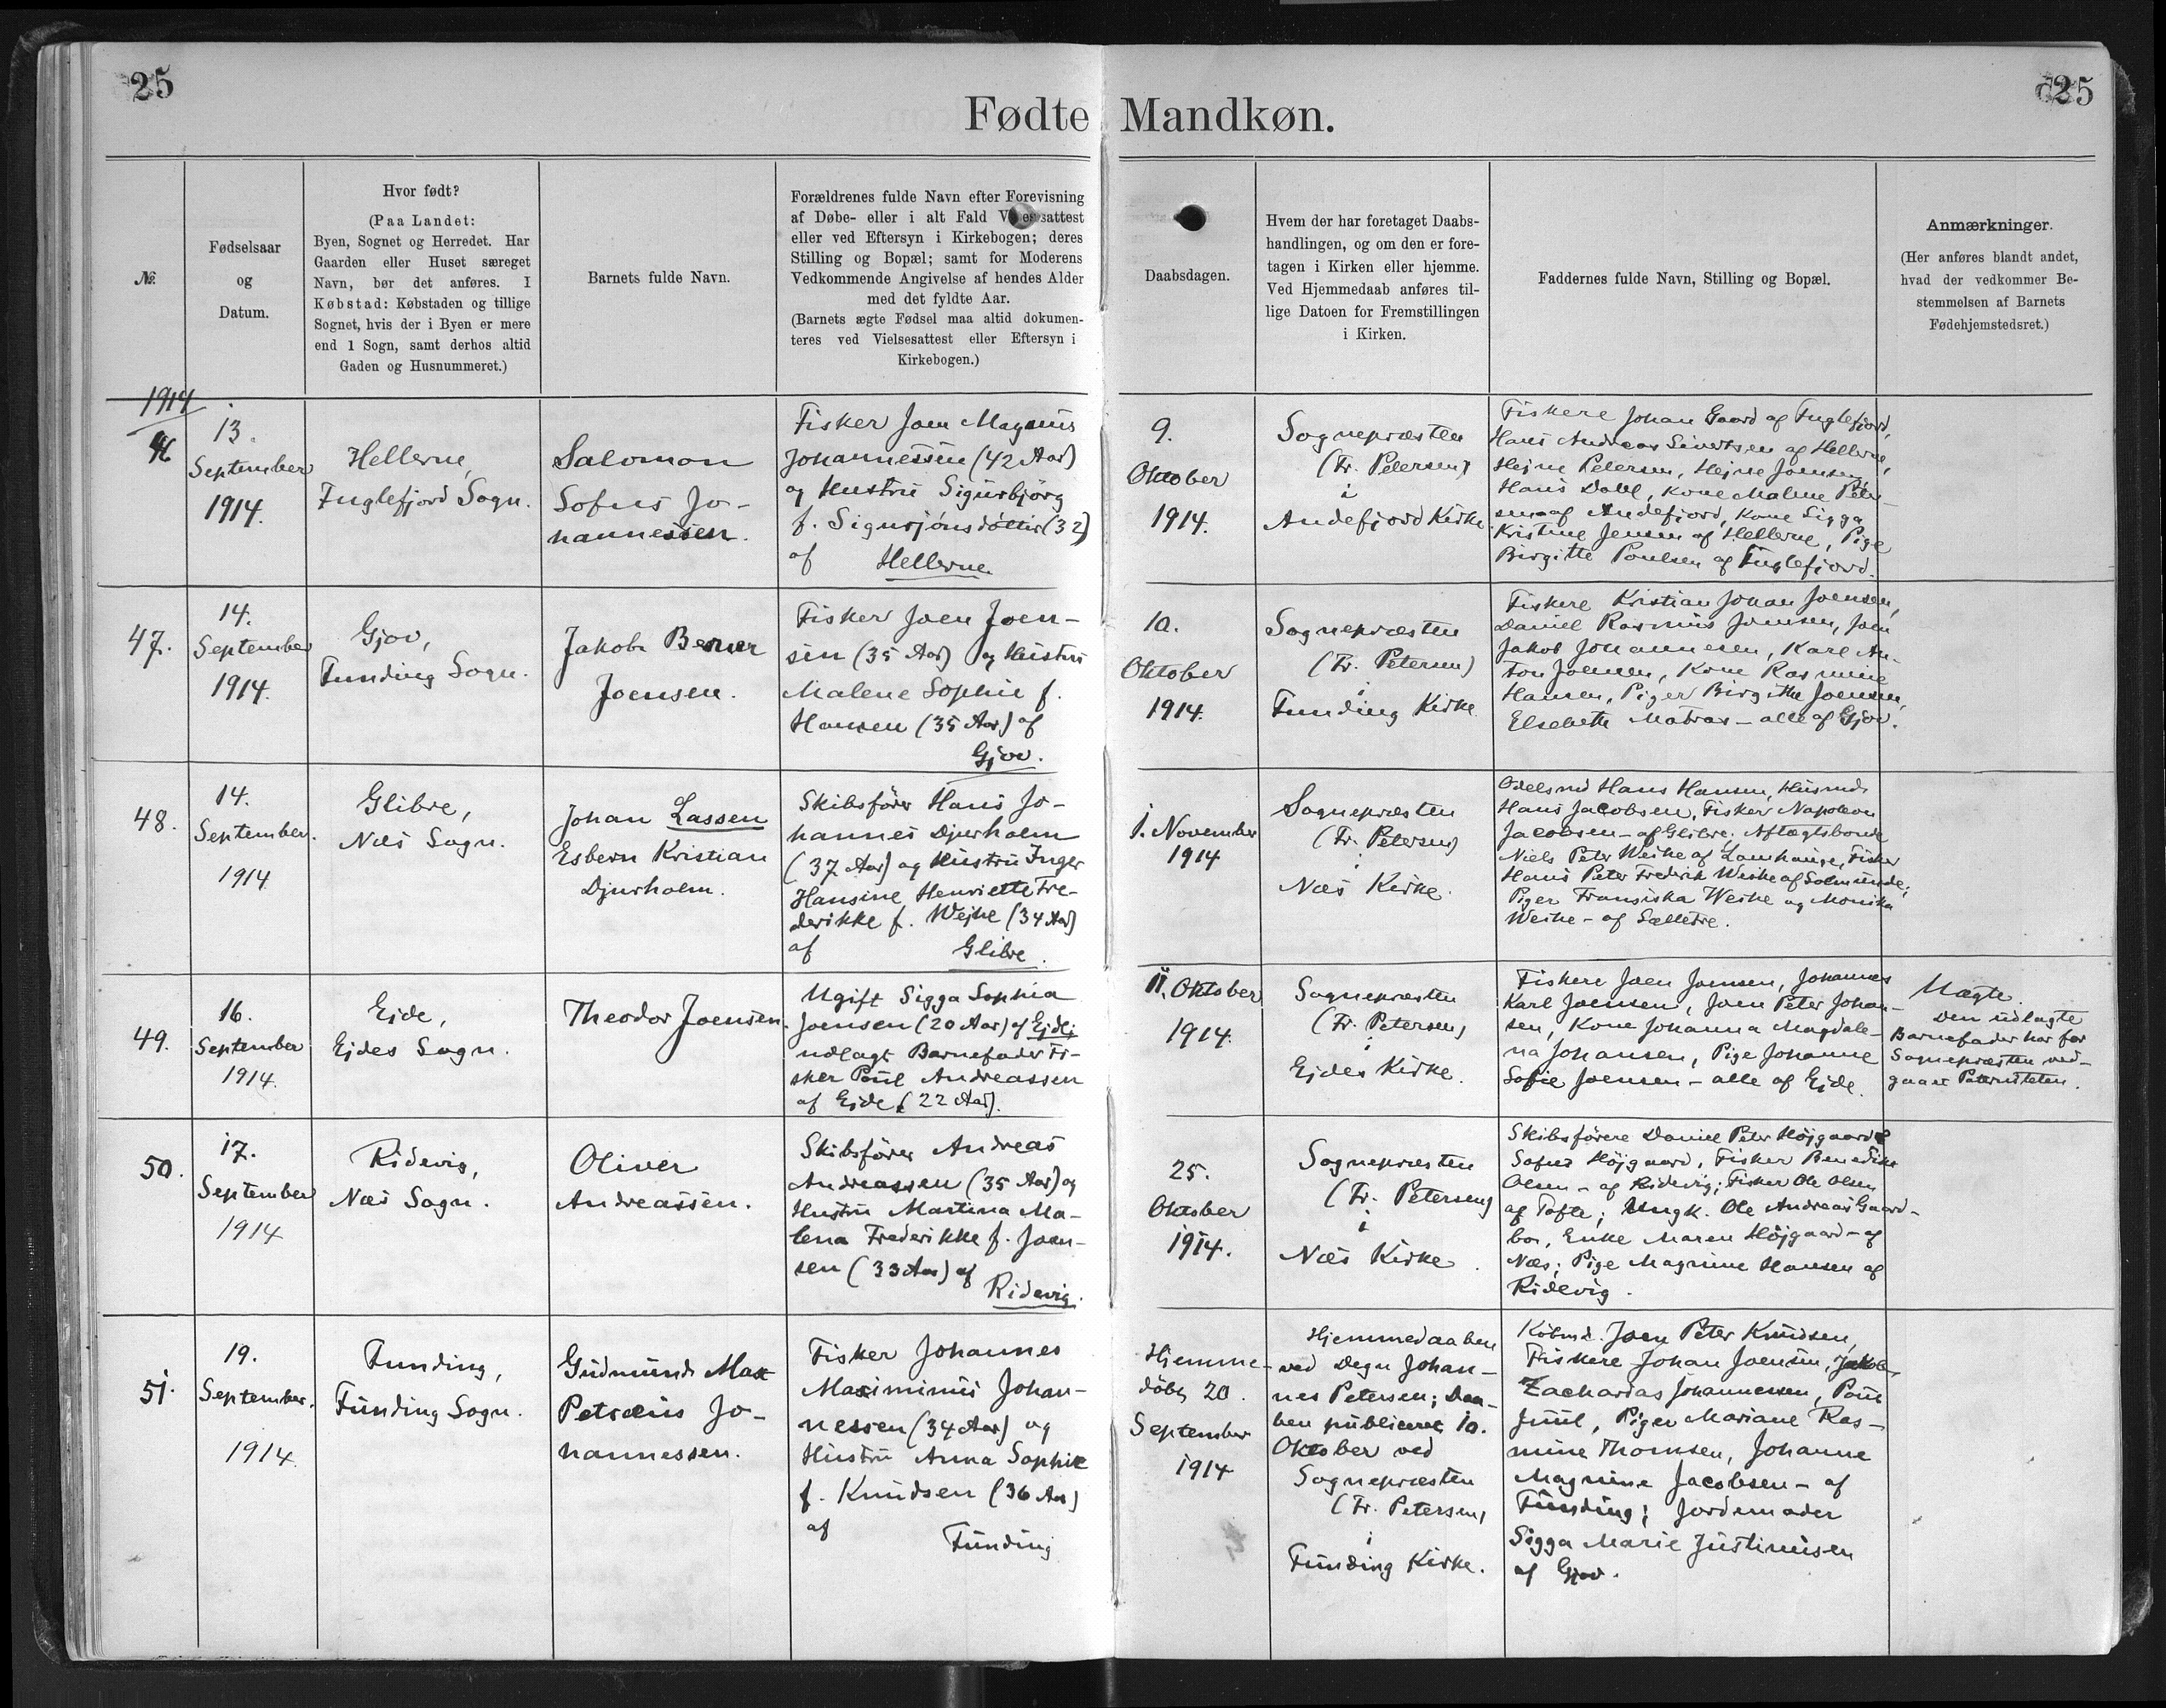 25
25
Fødte Mandkøn.
№.
Fødselsaar
og
Datum.
Hvor født?
(Paa Landet:
Byen, Sognet og Herredet. Har
Gaarden eller Huset særeget
Navn, bør det anføres. I
Købstad: Købstaden og tillige
Sognet, hvis der i Byen er mere
end 1 Sogn, samt derhos altid
Gaden og Husnummeret.)
Barnets fulde Navn.
Forældrenes fulde Navn efter Forevisning
af Døbe- eller i alt Fald Vielsesattest
eller ved Eftersyn i Kirkebogen; deres
Stilling og Bopæl; samt for Moderens
Vedkommende Angivelse af hendes Alder
med det fyldte Aar.
(Barnets ægte Fødsel maa altid dokumen-
teres ved Vielsesattest eller Eftersyn i
Kirkebogen.)
Daabsdagen.
Hvem der har foretaget Daabs-
handlingen, og om den er fore-
tagen i Kirken eller hjemme.
Ved Hjemmedaab anføres til-
lige Datoen for Fremstillingen
i Kirken.
Faddernes fulde Navn, Stilling og Bopæl.
Anmærkninger.
(Her anføres blandt andet,
hvad der vedkommer Be-
stemmelsen af Barnets
Fødehjemstedsret.)
1914
46
13.
September
1914.
Hellerne,
Fuglefjord Sogn.
Salomon
Sofus Jo-
hannessen.
Fisker Joen Magnus
Johannessen (42 Aar)
og Hustru Sigurbjörg
f. Sigursjónsdóttir (32)
af Hellerne
9.
Oktober
1914.
Sognepræsten
(Fr. Petersen)
i
Andefjord Kirke
Fiskere Johan Gaard af Fuglefjord,
Hans Andreas Sivertsen af Hellerne,
Hejne Petersen, Hejne Joensen,
Hans Dahl, Kone Malene Peter-
sen af Andefjord, Kone Sigga
Kristine Jensen af Hellerne, Pige
Birgitte Poulsen af Fuglefjord.
47.
14.
September
1914.
Gjov,
Funding Sogn.
Jakob Berner
Joensen.
Fisker Joen Joen-
sen (35 Aar) og Hustru
Malene Sophie f.
Hansen (35 Aar) af
Gjov.
10.
Oktober
1914.
Sognepræsten
(Fr. Petersen)
i
Funding Kirke
Fiskere Kristian Johan Joensen,
Daniel Rasmus Joensen, Joen
Jakob Johannesen, Karl An-
ton Joensen, Kone Rasmine
Hansen, Piger Birgithe Joensen,
Elsebeth Matras – alle af Gjov.
48.
14.
September.
1914
Glibre,
Næs Sogn.
Johan Lassen
Esbern Kristian
Djurholm.
Skibsfører Hans Jo-
hannes Djurholm
(37 Aar) og Hustru Inger
Hansine Henriette Fre-
derikke f. Wejhe (34 Aar)
af Glibre.
1. November
1914
Sognepræsten
(Fr. Petersen)
i
Næs Kirke.
Odelsmd Hans Hansen, Husmd.
Hans Jacobsen, Fisker Napoleon
Jacobsen – af Glibre; Aftægtsbonde
Niels Peter Weihe af Lamhauge, Fisker
Hans Peter Frederik Weihe af Solmunde;
Piger Fransiska Weihe og Monika
Weihe – af Selletre.
49.
16.
September
1914.
Ejde,
Ejdes Sogn.
Theodor Joensen.
Ugift Sigga Sophia
Joensen (20 Aar) af Ejde;
udlagt Barnefader Fi-
sker Poul Andreassen
af Ejde (22 Aar).
11. Oktober
1914.
Sognepræsten
(Fr. Petersen)
i
Ejdes Kirke.
Fiskere Joen Joensen, Johannes
Karl Joensen, Joen Peter Johan-
sen, Kone Johanna Magdale-
na Johansen, Pige Johanne
Sofie Joensen – alle af Ejde.
Uægte.
Den udlagte
Barnefader har for
Sognepræsten ved-
gaaet Paterniteten.
50.
17.
September
1914
Ridevig,
Næs Sogn.
Oliver
Andreassen.
Skibsfører Andreas
Andreassen (35 Aar) og
Hustru Martina Ma-
lena Frederikke f. Joen-
sen (33 Aar) af
Ridevig.
25.
Oktober
1914.
Sognepræsten
(Fr. Petersen)
i
Næs Kirke.
Skibsførere Daniel Peter Højgaard &
Sofus Højgaard, Fisker Benedikt
Olsen – af Ridevig; Fisker Ole Olsen
af Tofte; Ungk. Ole Andreas Gaard-
bo, Enke Maren Højgaard – af
Næs; Pige Magnine Hansen af
Ridevig.
51.
19.
September.
1914
Funding,
Funding Sogn.
Gudmund Max
Petræus Jo-
hannessen.
Fisker Johannes
Maximinus Johan-
nessen (34 Aar) og
Hustru Anna Sophie
f. Knudsen (36 Aar)
af Funding
Hjemme-
døbt 20.
September
1914
Hjemmedaaben
ved Degn Johan-
nes Petersen; Daa-
ben publiceret 10.
Oktober ved
Sognepræsten
(Fr. Petersen)
i
Funding Kirke.
Købmd. Joen Peter Knudsen,
Fiskere Johan Joensen, Jakob
Zacharias Johannessen, Poul
Juul, Piger Mariane Ras-
mine Thomsen, Johanne
Magnine Jacobsen – af
Funding; Jordemoder
Sigga Marie Justinusen
af Gjov.